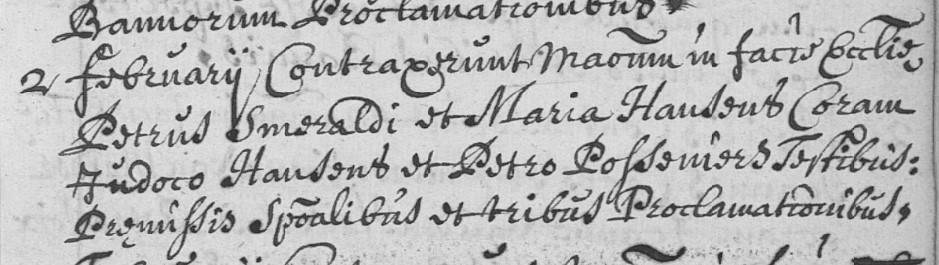 Bannorum Proclamationibus
2 februarij Contraxerunt Maōnium in facie Ecclīe
Petrus Smeraldi et Maria Hausens Coram
Judoco Hausens et Petro Posseniers Testibus:
Premissis Spōalibus et tribus Proclamationibus,